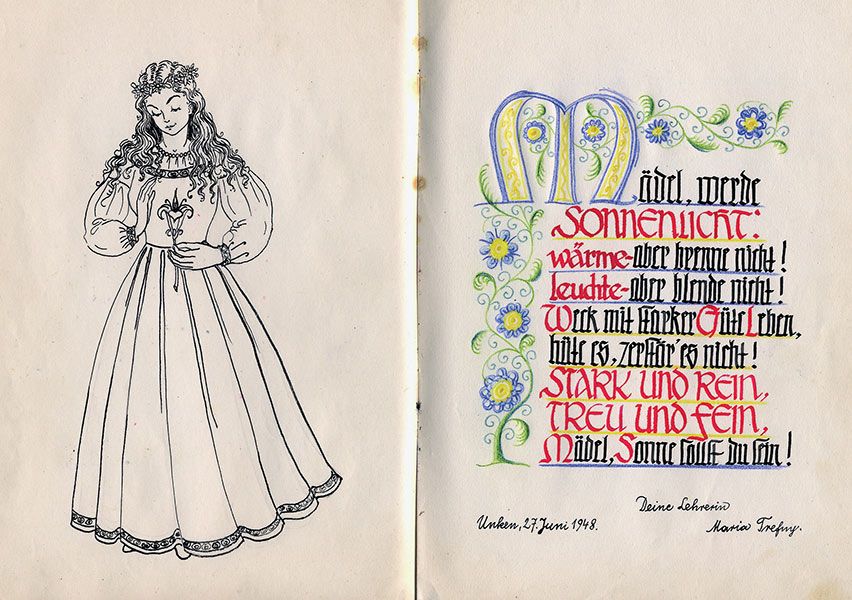 Mädel, werde
SONNENLICHT:
wärme-aber brenne nicht!
leuchte-aber blende nicht!
Weck mit starker Güte Leben,
hüte es, zerstör' es nicht!
STARK UND REIN,
TREU UND FEIN,
Mädel, Sonne sollst du sein!
Deine Lehrerin
Unken, 27. Juni 1948. Maria Trefny.